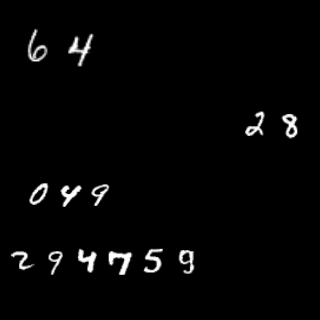 64
28
049
294759